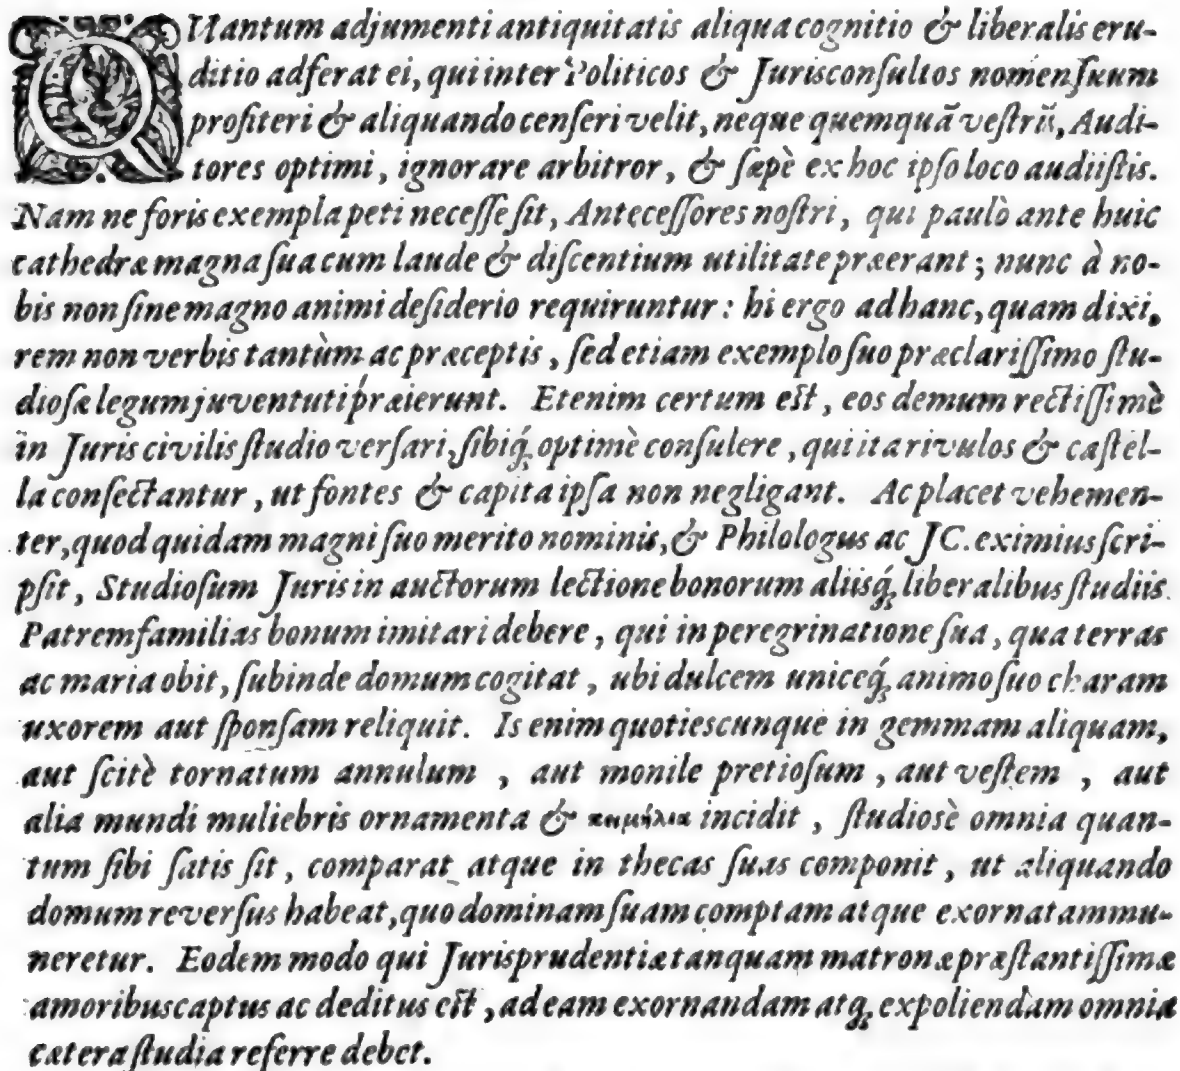 QUantum adjumenti antiquitatis aliqua cognitio & liberalis eru-
ditio adferat ei, qui inter Politicos & Jurisconſultos nomen ſuum
profiteri & aliquando cenſeri velit, neque quemquã veſtrũ, Audi-
tores optimi, ignorare arbitror, & ſæpè ex hoc ipſo loco audiiſtis.
Nam ne foris exempla peti neceſſe ſit, Anteceſſores noſtri, qui paulò ante huic
cathedræ magna ſua cum laude & diſcentium utilitate præerant; nunc à no-
bis non ſine magno animi deſiderio requiruntur: hi ergo ad hanc, quam dixi,
rem non verbis tantùm ac præceptis, ſed etiam exemplo ſuo præclariſſimo ſtu-
dioſæ legum juventuti præierunt. Etenim certum eſt, eos demum rectiſſimè
in Juris civilis ſtudio verſari, ſibiq́; optimè conſulere, qui ita rivulos & caſtel-
la conſectantur, ut fontes & capita ipſa non negligant. Ac placet vehemen-
ter, quod quidam magni ſuo merito nominis, & Philologus ac JC. eximius ſcri-
pſit, Studioſum Juris in auctorum lectione bonorum aliisq́; liberalibus ſtudiis
Patremfamilias bonum imitari debere, qui in peregrinatione ſua, qua terras
ac maria obit, ſubinde domum cogitat, ubi dulcem uniceq́; animo ſuo charam
uxorem aut ſponſam reliquit. Is enim quotiescunque in gemmam aliquam,
aut ſcitè tornatum annulum, aut monile pretioſum, aut veſtem, aut
alia mundi muliebris ornamenta & κειμήλια incidit, ſtudioſè omnia quan-
tum ſibi ſatis ſit, comparat atque in thecas ſuas componit, ut aliquando
domum reverſus habeat, quo dominam ſuam comptam atque exornatam mu-
neretur. Eodem modo qui Jurisprudentiæ tanquam matronæ præſtantiſſimæ
amoribus captus ac deditus eſt, ad eam exornandam atq; expoliendam omnia
cætera ſtudia referre debet.